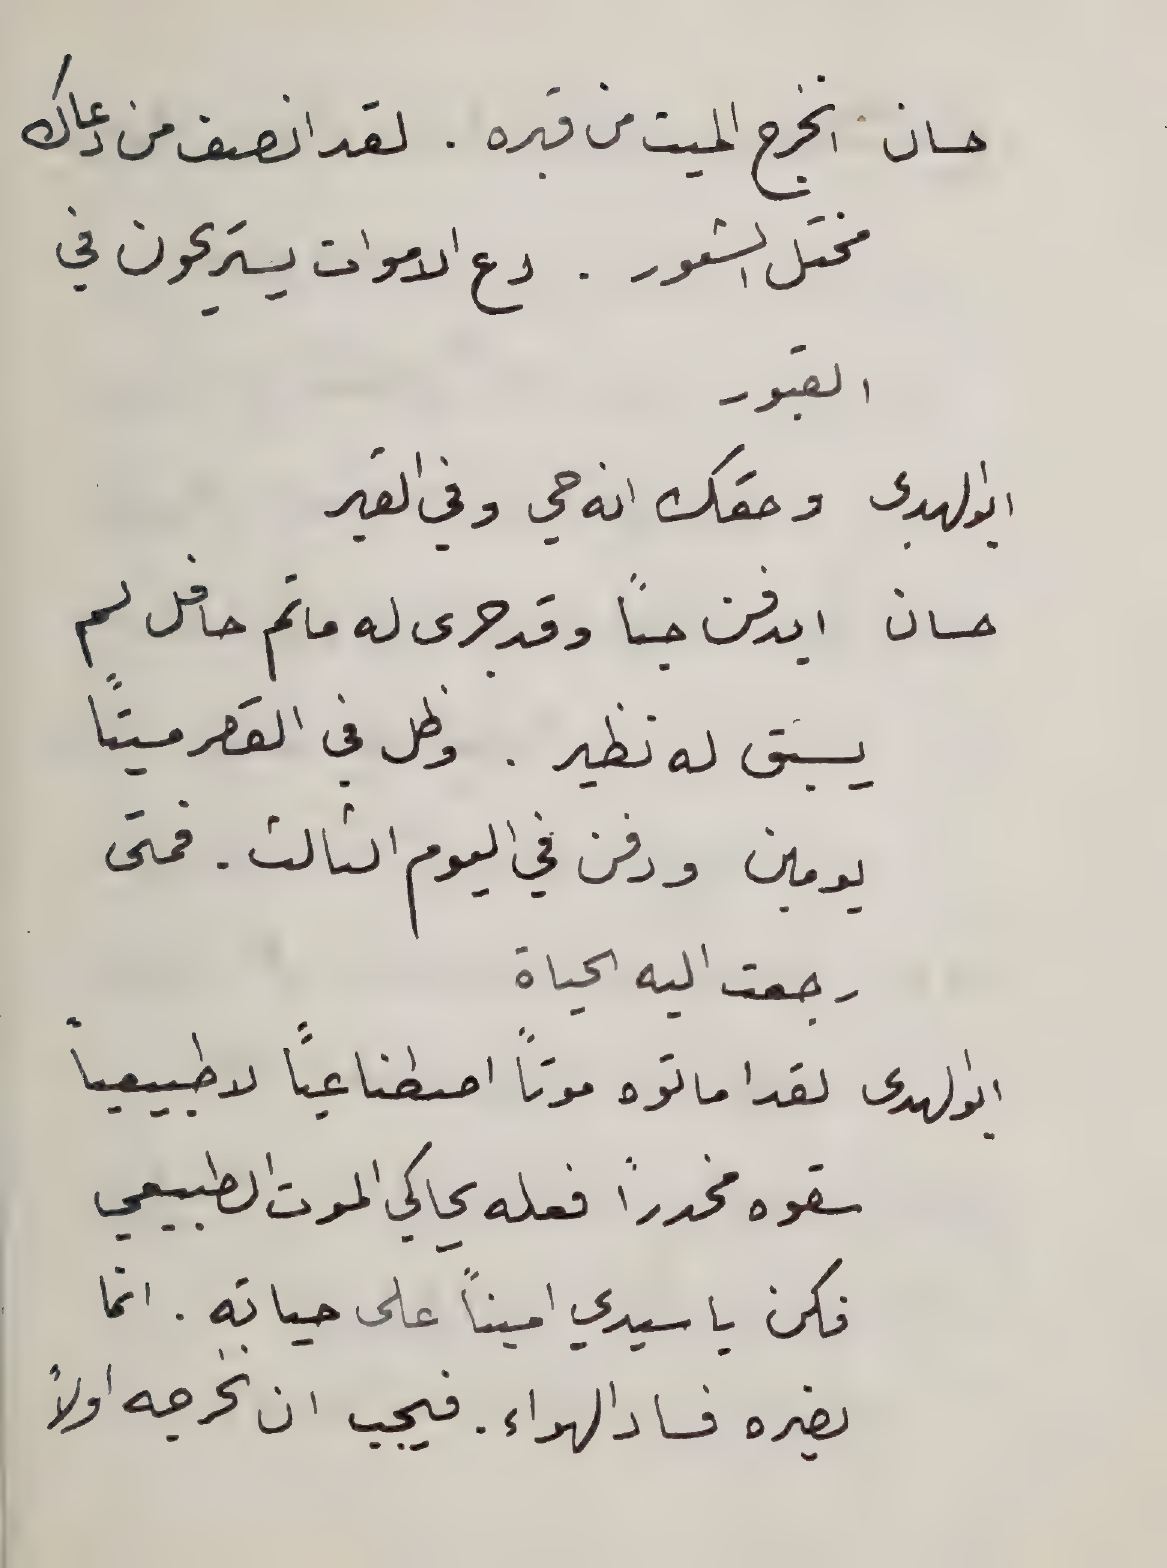 حسان انخرج الميت من قبره . لقد انصف من دعاك
مختل الشعور . دع الاموات يستريحون في
القبور
ابوالهدى وحقك انه حي وفي القبر
حسان ايدفن حياً وقد جرى له ماتم حافل لم
يسبق له نظير . وظل في القصر ميتاً
يومين ودفن في اليوم الثالث . فمتى
رجعت اليه الحياة
ابوالهدى لقد اماتوه موتاً اصطناعياً لا طبيعياً
سقوه مخدراً فعله يحاكي الموت الطبيعي
فكن يا سيدي اميناً على حياته . انما
يضره فساد الهواء . فيجب ان نخرجه اولاً